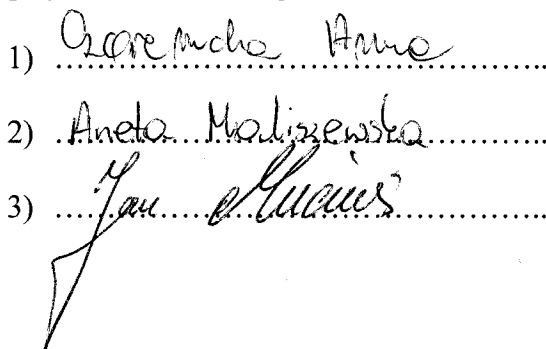 1) Czeremcha Anna
2) Aneta Maliszewska
3) Jan